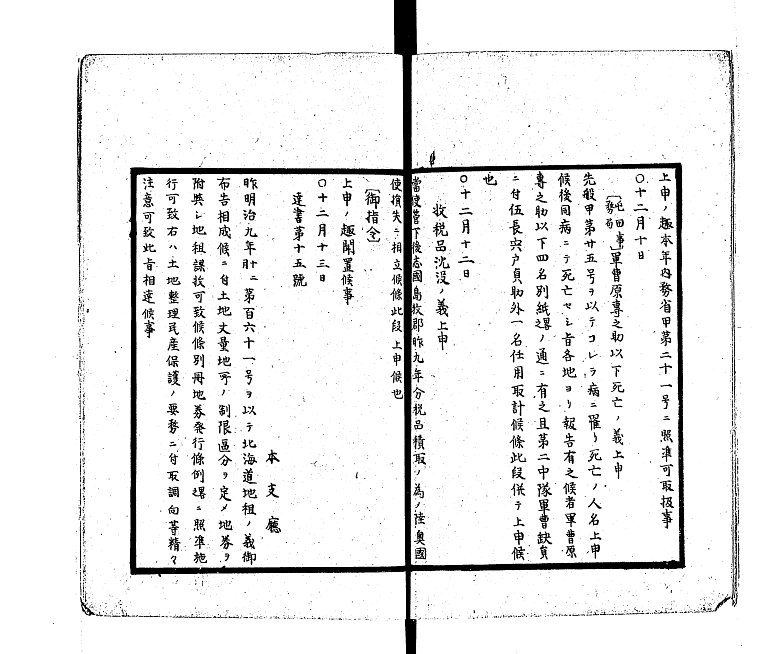 上申ノ趣本年内務省甲第二十一号ニ照準可取扱事
〇十二月十日
〔屯田事務局〕軍曹原專之助以下死亡ノ義上申
先般甲第廿五号ヲ以テコレラ病ニ罹リ死亡ノ人名上申
候後同病ニテ死亡セシ旨各地ヨリ報告有之候者軍曹原
專之助以下四名別紙畧ノ通ニ有之且第二中隊軍曹缺員
ニ付伍長宍戸貞助外一名仕用取計候條此段併テ上申候
也
〇十二月十二日
收税品沈没ノ義上申
當使管下後志國島牧郡昨九年分税品積取ノ為ノ陸奥國
使損失ニ相立候條此段上申候也
〔御指令〕
上申ノ趣聞置候事
〇十二月十三日
達書第十五號
本支廳
昨明治九年十二第百六十一号ヲ以テ北海道地租ノ義御
布告相成候ニ付土地丈量地所ノ制限區分ヲ定メ地券ヲ
附與シ地租課收可致候條別冊地券発行條例畧ニ照準施
行可致右ハ土地整理民産保護ノ要務ニ付取調向等精々
注意可致此旨相達候事